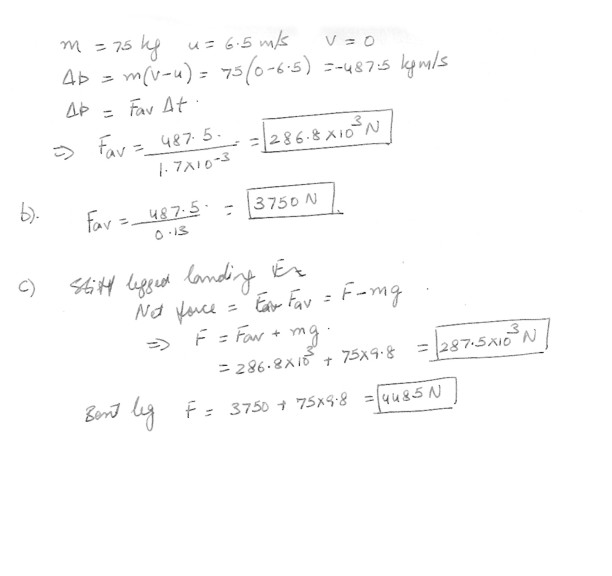 m = 75 kg u = 6.5 m/s V = 0
Δp = m(v-u) = 75(0-6.5) = -487.5 kg m/s
Δp = Fav Δt.
⇒ Fav = 487.5 / 1.7×10^-3 = 286.8×10^3 N
b). Fav = 487.5 / 0.13 = 3750 N
c) Stiff legged landing
Net force = Fav = F-mg.
⇒ F = Fav + mg.
= 286.8×10^3 + 75×9.8 = 287.5×10^3 N
Bent leg F = 3750 + 75×9.8 = 4485 N